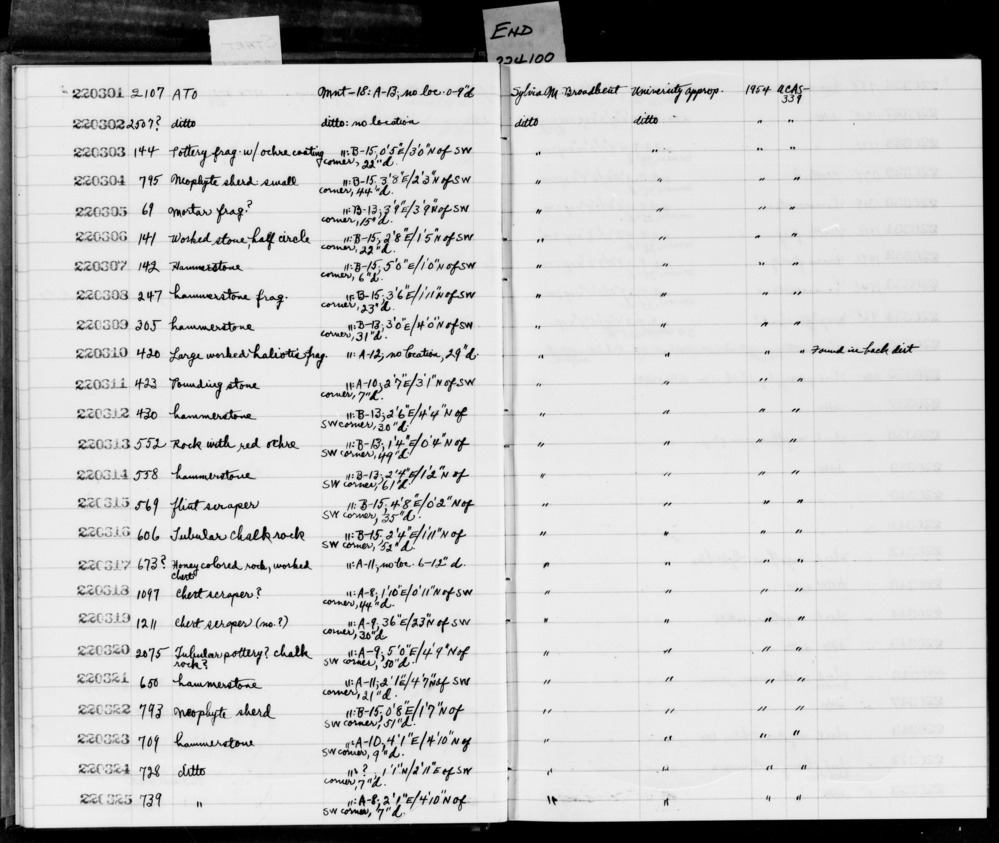 START
END
224100
220301 2107 ATO Mnt-18: A-13; no loc. 0-9"d Sylvia M. Broadbent University approp. 1954 acAS-339
220302 2507? ditto ditto: no location ditto ditto " "
220303 144 Pottery frag. w/ ochre coating ": B-15, 0'5"E/3'0"N of SW " " " "
corner, 22"d.
220304 795 Neophyte sherd: small ": B-15, 3'8"E/2'3"N of SW " " " "
corner, 44"d.
220305 69 Mortar frag? ": B-13; 3'9"E/3'9"N of SW " " " "
corner, 15"d.
220306 141 Worked stone, half circle ": B-15, 2'8"E/1'5"N of SW " " " "
corner, 22"d.
220307 142 Hammerstone ": B-15, 5'0"E/1'0"N of SW " " " "
corner, 6"d.
220308 247 hammerstone frag. ": B-15, 3'6"E/1'11"N of SW " " " "
corner, 23"d.
220309 205 hammerstone ": B-13; 3'0"E/4'0"N of SW " " " "
corner, 31"d.
220310 420 Large worked haliotis frag. ": A-12, no location, 29"d. " " " " Found in back dirt
220311 423 Pounding stone ": A-10, 2'7"E/3'1"N of SW " " " "
corner, 7"d.
220312 430 hammerstone ": B-13; 2'6"E/4'4"N of " " " "
SW corner, 30"d.
220313 552 Rock with red ochre ": B-13; 1'4"E/0'4"N of " " " "
SW corner, 49"d.
220314 558 hammerstone ": B-13; 2'4"E/1'2"N of " " " "
SW corner, 61"d.
220315 569 flint scraper ": B-15, 4'8"E/0'2"N of " " " "
SW corner, 35"d.
220316 606 Tubular chalk rock ": B-15, 2'4"E/1'11"N of " " " "
SW corner, 52"d.
220317 673? Honey colored rock, worked ": A-11, no loc. 6-12" d. " " " "
chert
220318 1097 Chert scraper? ": A-8; 1'10"E/0'11"N of SW " " " "
corner, 44"d.
220319 1211 Chert scraper (no.?) ": A-9, 36"E/23"N of SW " " " "
corner, 30"d
220320 2075 Tubular pottery? chalk ": A-9; 5'0"E/4'9"N of " " " "
rock? SW corner, 50"d.
220321 650 hammerstone ": A-11; 2'1"E/4'7"N of SW " " " "
corner, 21"d.
220322 793 Neophyte sherd ": B-15, 0'8"E/1'7"N of " " " "
SW corner, 51"d.
220323 709 hammerstone ": A-10, 4'1"E/4'10"N of " " " "
SW corner, 9"d.
220324 728 ditto ": ?, 1'1"N/2'11"E of SW " " " "
corner, 7"d.
220325 739 " ": A-8; 2'1"E/4'10"N of " " " "
SW corner, 7"d.